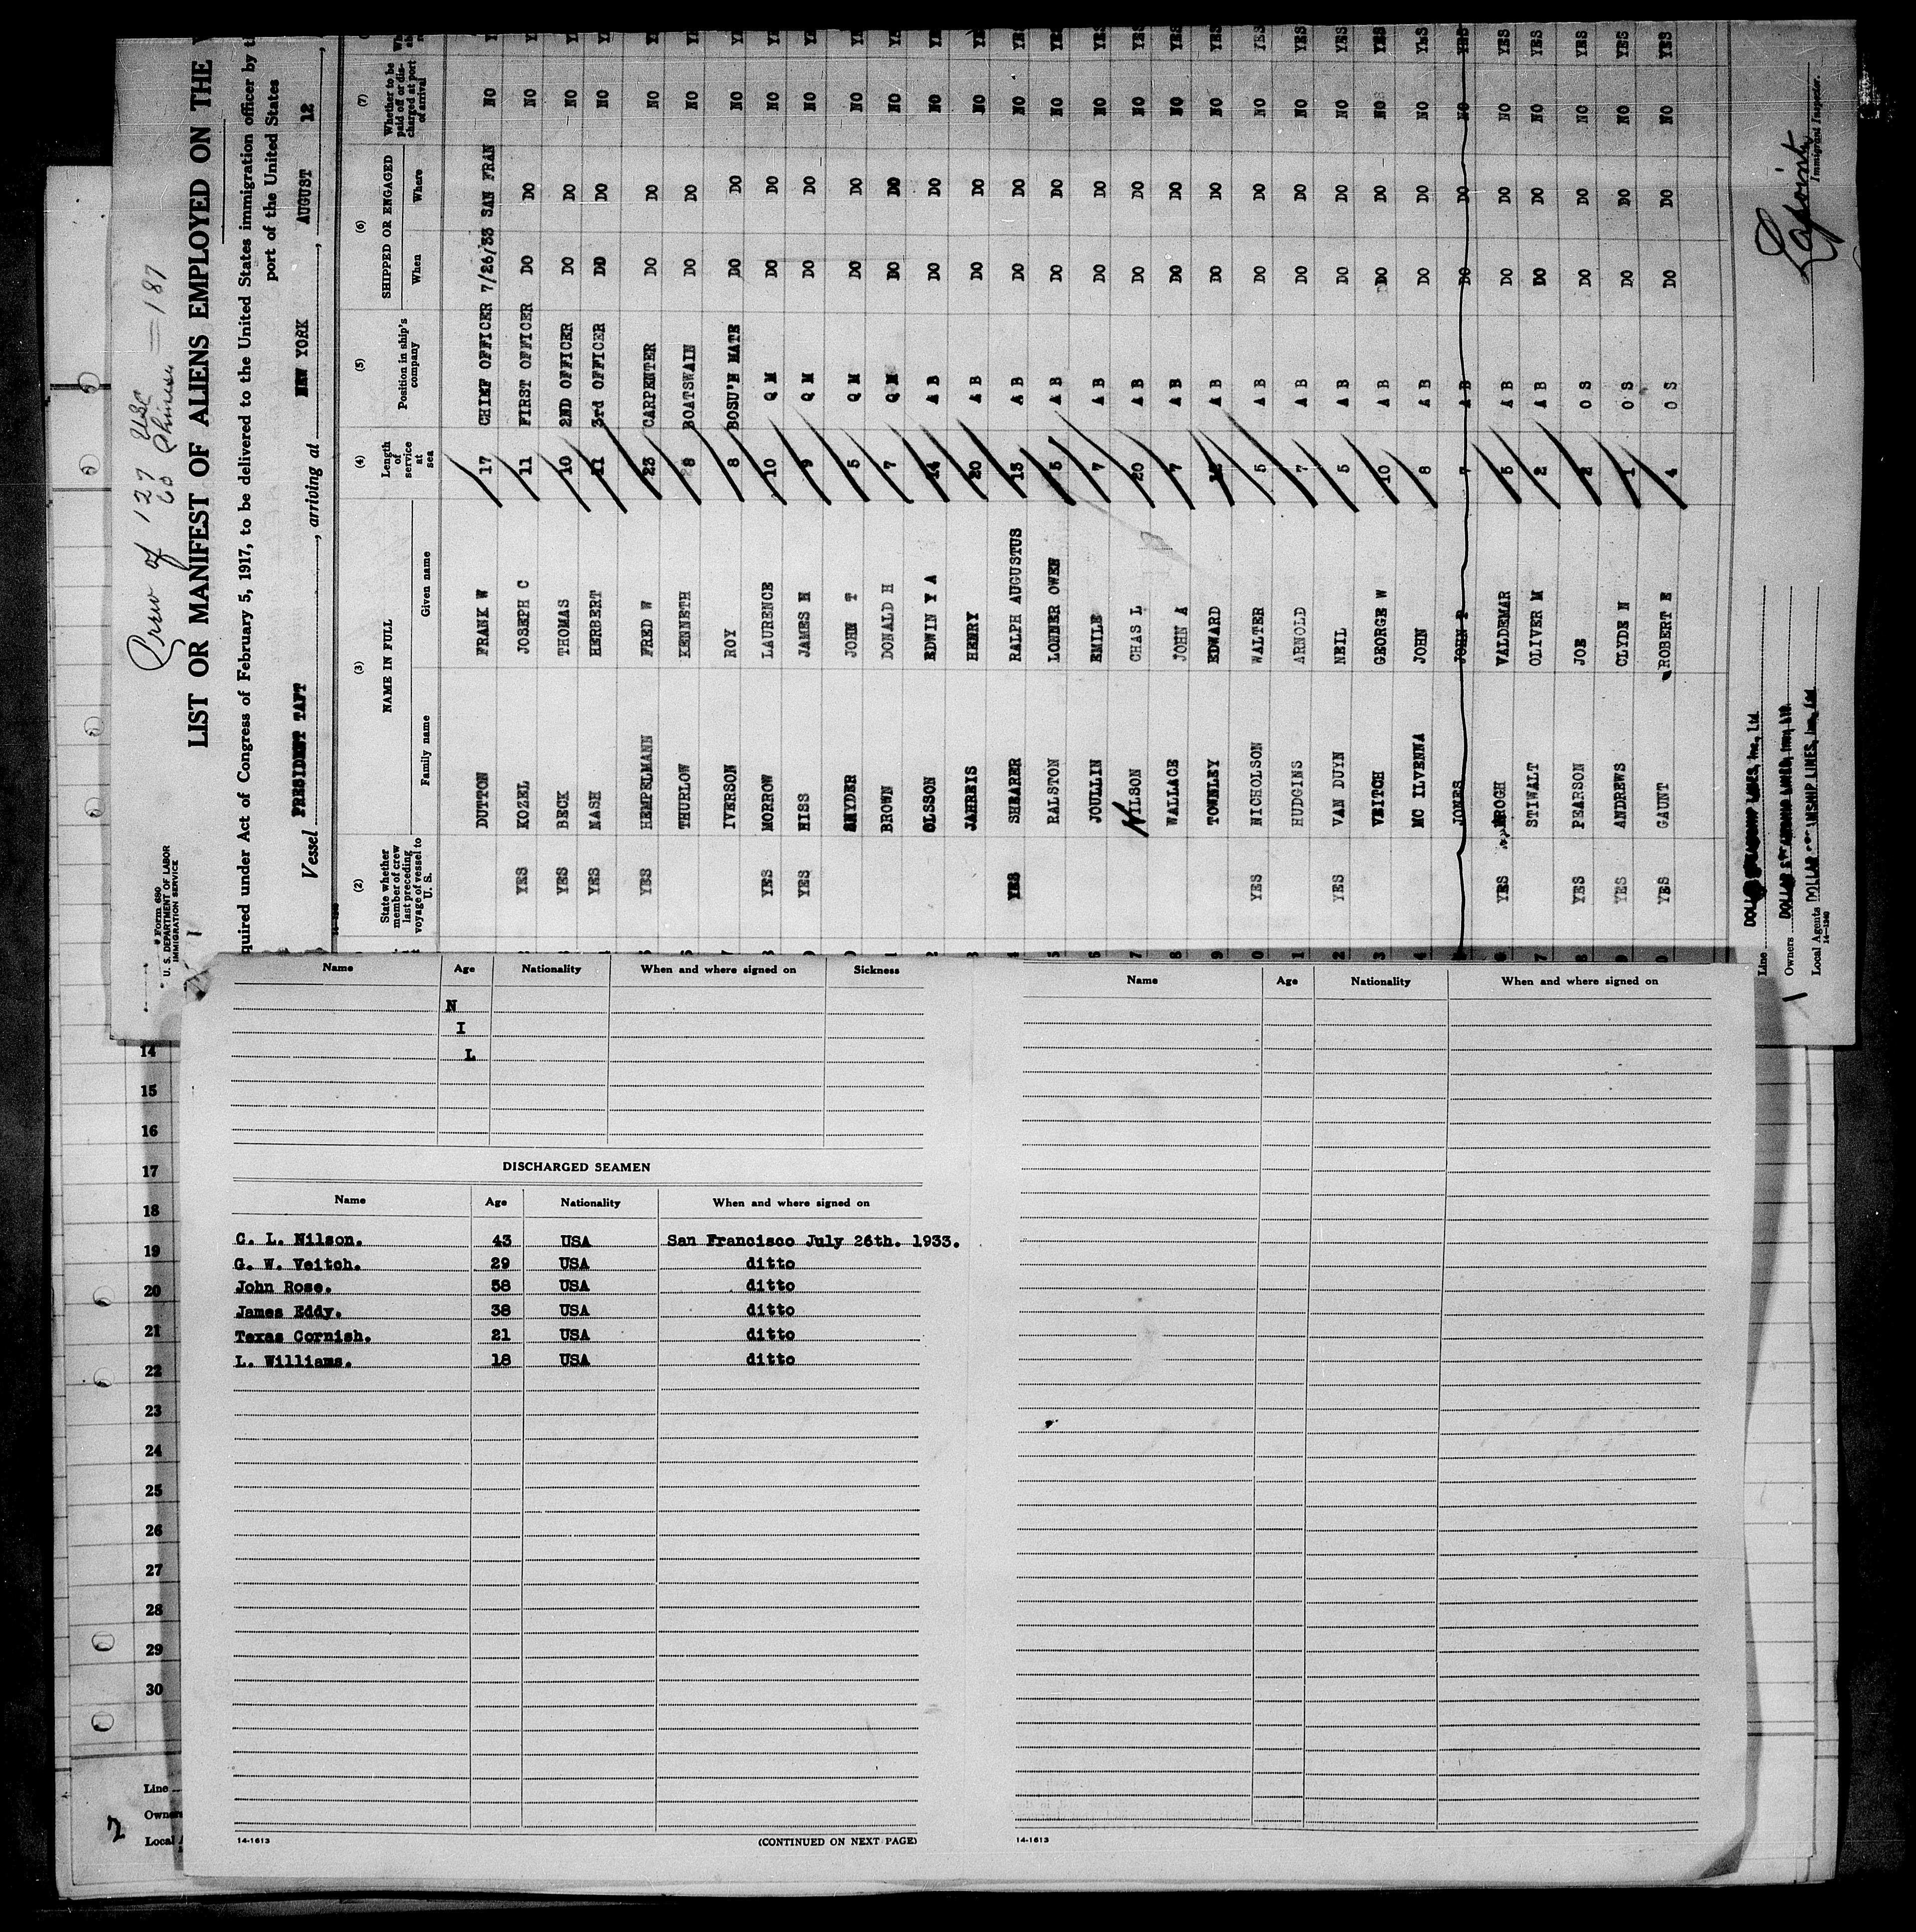 Crew of 127 USC
60 Chinese = 187
Form 680
U. S. DEPARTMENT OF LABOR
IMMIGRATION SERVICE
1
LIST OR MANIFEST OF ALIENS EMPLOYED ON THE
quired under Act of Congress of February 5, 1917, to be delivered to the United States immigration officer by
port of the United States
Vessel PRESIDENT TAFT, arriving at NEW YORK, AUGUST 12,
(2) (3) (4) (5) (6) (7)
State whether member of crew last preceding voyage of vessel to U. S. NAME IN FULL Length of service at sea Position in ship's company SHIPPED OR ENGAGED Whether to be paid off or discharged at port of arrival
Family name Given name When Where
DUTTON FRANK W 17 CHIEF OFFICER 7/26/33 SAN FRAN NO
YES KOZEL JOSEPH C 11 FIRST OFFICER DO DO NO
YES BECK THOMAS 10 2ND OFFICER DO DO NO
YES NASH HERBERT 11 3rd OFFICER DO DO NO
YES HEMPELMANN FRED W 23 CARPENTER DO DO NO
THURLOW KENNETH 8 BOATSWAIN DO DO NO
IVERSON ROY 8 BOSU'N MATE DO DO NO
YES MORROW LAURENCE 10 Q M DO DO NO
YES HISS JAMES H 9 Q M DO DO NO
SNYDER JOHN T 5 Q M DO DO NO
BROWN DONALD H 7 Q M DO DO NO
OLSSON EDWIN Y A 14 A B DO DO NO YES
JAHREIS HENRY 20 A B DO DO NO YES
YES SHEARER RALPH AUGUSTUS 13 A B DO DO NO YES
RALSTON LONNER OWEN 5 A B DO DO NO YES
JOULLIN EMILE 7 A B DO DO NO YES
NILSON CHAS L 20 A B DO DO NO YES
WALLACE JOHN A 7 A B DO DO NO YES
TOWNLEY EDWARD A B DO DO NO YES
YES NICHOLSON WALTER 5 A B DO DO NO YES
HUDGINS ARNOLD 7 A B DO DO NO YES
YES VAN DUYN NEIL 5 A B DO DO NO YES
VEITCH GEORGE W 10 A B DO DO NO YES
MC ILVENNA JOHN 8 A B DO DO NO YES
JONES JOHN P 7 A B DO DO NO YES
YES KROGH VALDEMAR 5 A B DO DO NO YES
STIWALT OLIVER M 2 A B DO DO NO YES
YES PEARSON JOE 2 O S DO DO NO YES
YES ANDREWS CLYDE N 1 O S DO DO NO YES
YES GAUNT ROBERT E 4 O S DO DO NO YES
Line DOLLAR STEAMSHIP LINES, Inc., Ltd.
Owners DOLLAR STEAMSHIP LINES, Inc., Ltd.
Local Agents DOLLAR STEAMSHIP LINES, Inc., Ltd.
14-1240
Lapointe
Immigrant Inspector.
1
Name Age Nationality When and where signed on Sickness
N
I
L
DISCHARGED SEAMEN
Name Age Nationality When and where signed on
C. L. Nilson. 43 USA San Francisco July 26th. 1933.
G. W. Veitch. 29 USA ditto
John Rose. 58 USA ditto
James Eddy. 38 USA ditto
Texas Cornish. 21 USA ditto
L. Williams. 18 USA ditto
14-1613
(CONTINUED ON NEXT PAGE)
Name Age Nationality When and where signed on
14-1613
14
15
16
17
18
19
20
21
22
23
24
25
26
27
28
29
30
Line
Owners
Local
2